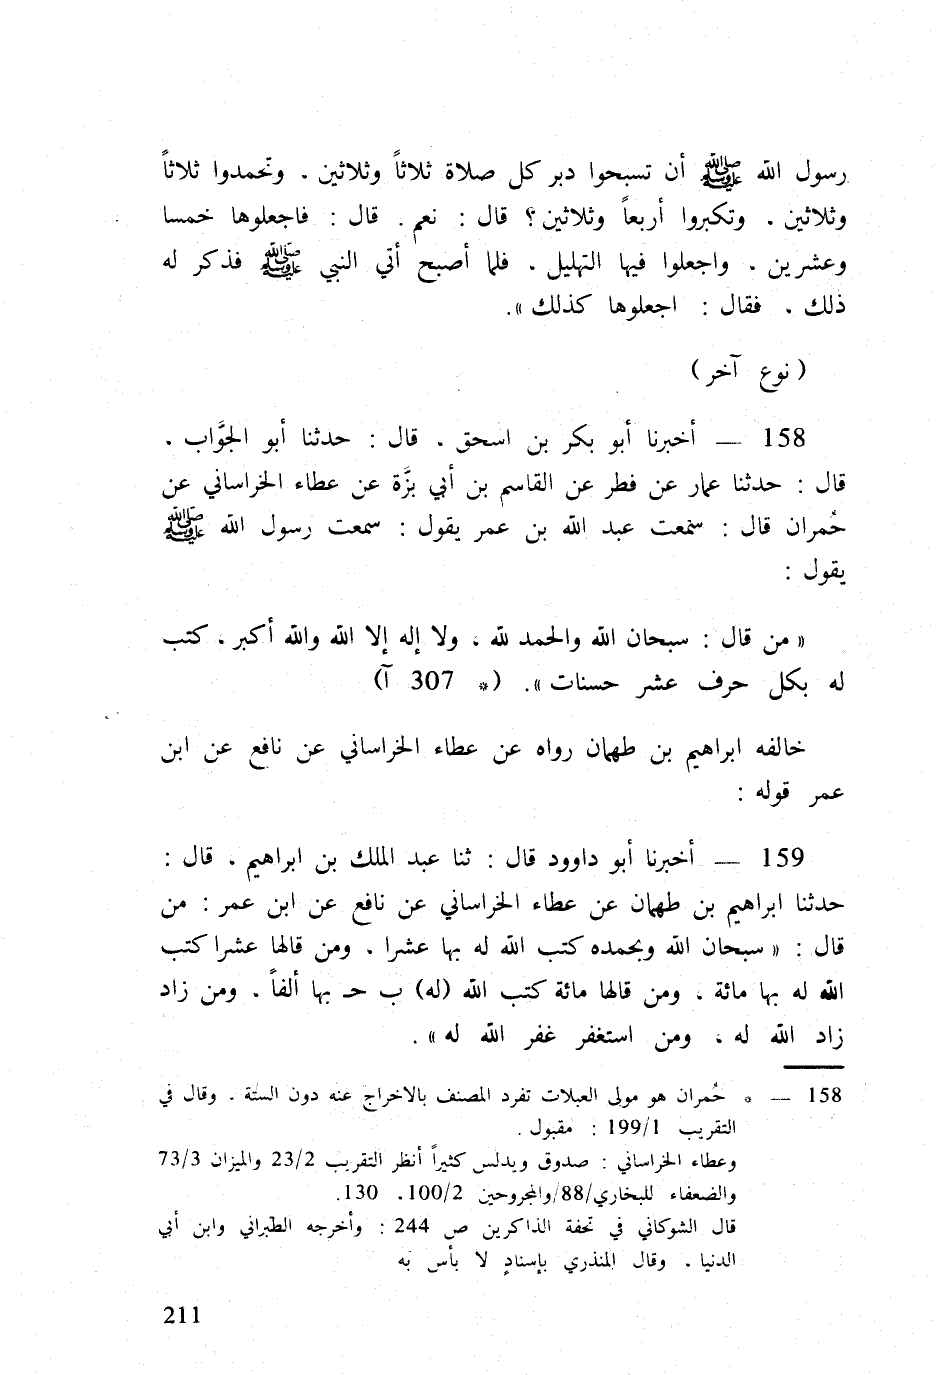 رسول الله ﷺ أن تسبحوا دبر كل صلاة ثلاثاً وثلاثين . وتحمدوا ثلاثاً
وثلاثين . وتكبروا أربعاً وثلاثين ؟ قال : نعم . قال : فاجعلوها خمسا
وعشرين . واجعلوا فيها التهليل . فلما أصبح أتي النبي ﷺ فذكر له
ذلك . فقال : اجعلوها كذلك ».
( نوع آخر )
158 — أخبرنا أبو بكر بن اسحق . قال : حدثنا أبو الجوَّاب .
قال : حدثنا عمار عن فطر عن القاسم بن أبي بزَّة عن عطاء الخراساني عن
حُمران قال : سمعت عبد الله بن عمر يقول : سمعت رسول الله ﷺ
يقول :
« من قال : سبحان الله والحمد لله ، ولا إله إلا الله والله أكبر . كتب
له بكل حرف عشر حسنات ». (* 307 آ)
خالفه ابراهيم بن طهمان رواه عن عطاء الخراساني عن نافع عن ابن
عمر قوله :
159 — أخبرنا أبو داوود قال : ثنا عبد الملك بن ابراهيم . قال :
حدثنا ابراهيم بن طهمان عن عطاء الخراساني عن نافع عن ابن عمر : من
قال : « سبحان الله وبحمده كتب الله له بها عشرا . ومن قالها عشرا كتب
الله له بها مائة . ومن قالها مائة كتب الله (له) ب حـ بها ألفاً . ومن زاد
زاد الله له ، ومن استغفر غفر الله له » .
158 — * حُمران هو مولى العبلات تفرد المصنف بالاخراج عنه دون الستة . وقال في
التقريب 199/1 : مقبول .
وعطاء الخراساني : صدوق ويدلس كثيراً أنظر التقريب 23/2 والميزان 73/3
والضعفاء للبخاري/88/والمجروحين 100/2. 130.
قال الشوكاني في تحفة الذاكرين ص 244 : وأخرجه الطبراني وابن أبي
الدنيا . وقال المنذري بإسنادٍ لا بأس به
211